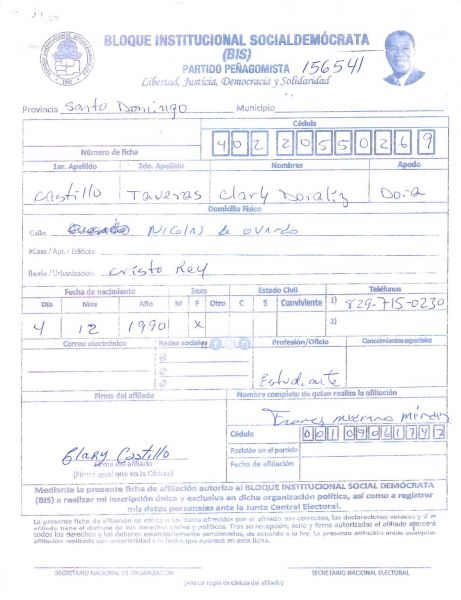 BLOQUE INSTITUCIONAL SOCIALDEMÓCRATA
(BIS)
PARTIDO PEÑAGOMISTA 156541
Libertad, Justicia, Democracia y Solidaridad
Provincia Santo Domingo Municipio
Cédula
Número de ficha 402 2055026 9
1er. Apellido 2do. Apellido Nombres Apodo
Castillo Taveras Clary Doraliz Dora
Domicilio Físico
Calle: Nicolas de ovando
#Casa / Apt. / Edificio:
Barrio / Urbanización: Cristo Rey
Fecha de nacimiento Sexo Estado Civil Teléfonos
Día Mes Año M F Otro C S Conviviente 1) 829-715-0230
4 12 1990 X 2)
Correo electrónico Redes sociales Profesión/Oficio Conocimientos especiales
Estudiante
Firma del afiliado Nombre completo de quien realiza la afiliación
Cédula 001 0906174 7
Clary Castillo Posición en el partido
Firma del afiliado Fecha de afiliación
(Firma igual que en la Cédula)
Mediante la presente ficha de afiliación autorizo al BLOQUE INSTITUCIONAL SOCIAL DEMÓCRATA
(BIS) a realizar mi inscripción única y exclusiva en dicha organización política, así como a registrar
mis datos personales ante la Junta Central Electoral.
La presente ficha de afiliación es válida si los datos ofrecidos por el afiliado son correctos, las declaraciones veraces y si el
afiliado tiene el disfrute de sus derechos civiles y políticos. Tras su recepción, sello y firma autorizadas el afiliado ejercerá
todos los derechos y los deberes estatutariamente sancionados, de acuerdo a la ley. La presente afiliación anula cualquier
afiliación realizada con anterioridad a la fecha que aparece en esta ficha.
SECRETARIO NACIONAL DE ORGANIZACIÓN SECRETARIO NACIONAL ELECTORAL
(Anexar copia de cédula del afiliado)